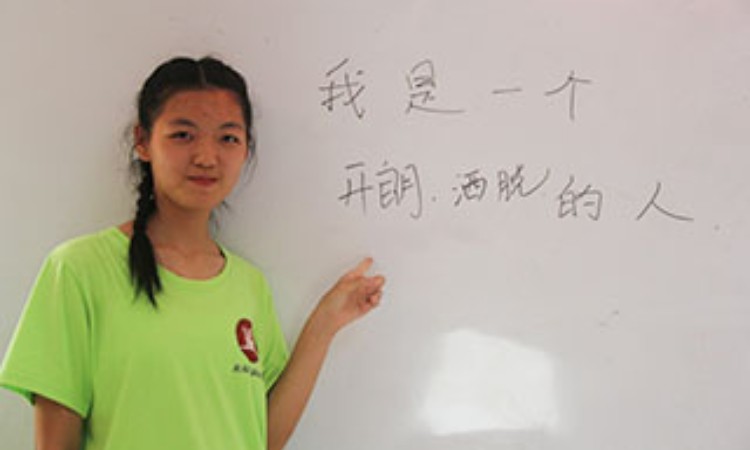 我是一个
开朗.洒脱的人.